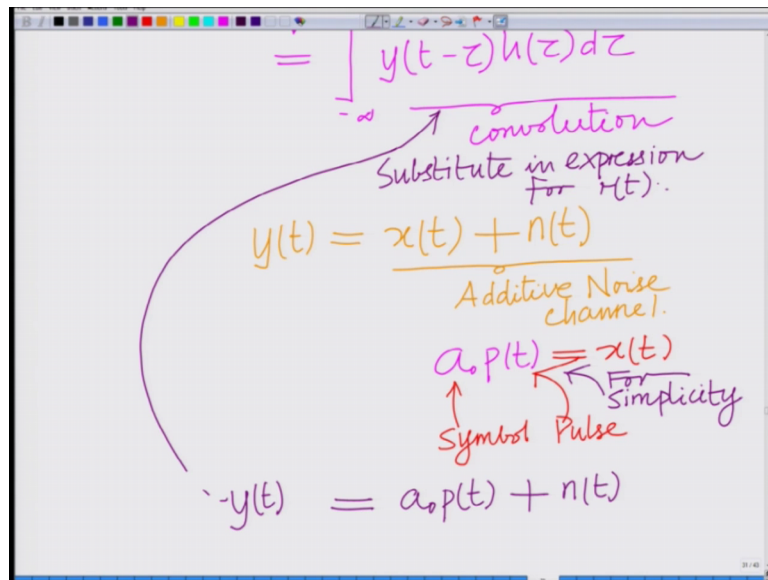 = ∫ y(t-τ)h(τ)dτ
-∞
convolution
Substitute in expression
For r(t).
y(t) = x(t) + n(t)
Additive Noise
channel.
a₀p(t) = x(t)
For
Simplicity
Symbol Pulse
y(t) = a₀p(t) + n(t)
31 / 43